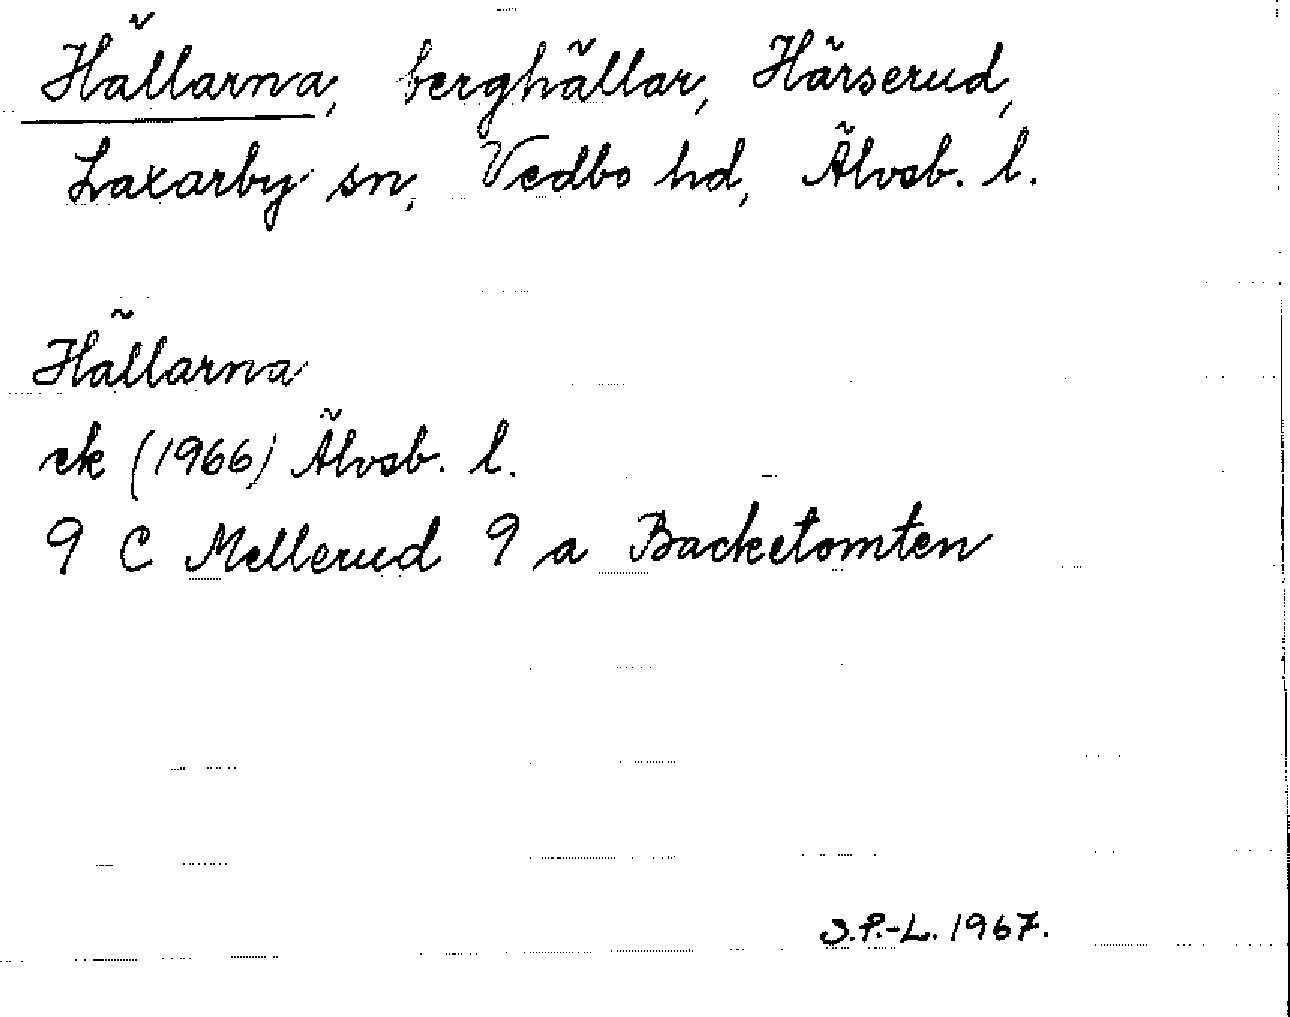 Hällarna, berghällar, Härserud,
Laxarby sn, Vedbo hd, Älvsb. l.
Hällarna
ek (1966) Älvsb. l.
9 C Mellerud 9 a Backetomten
S.P.-L. 1967.